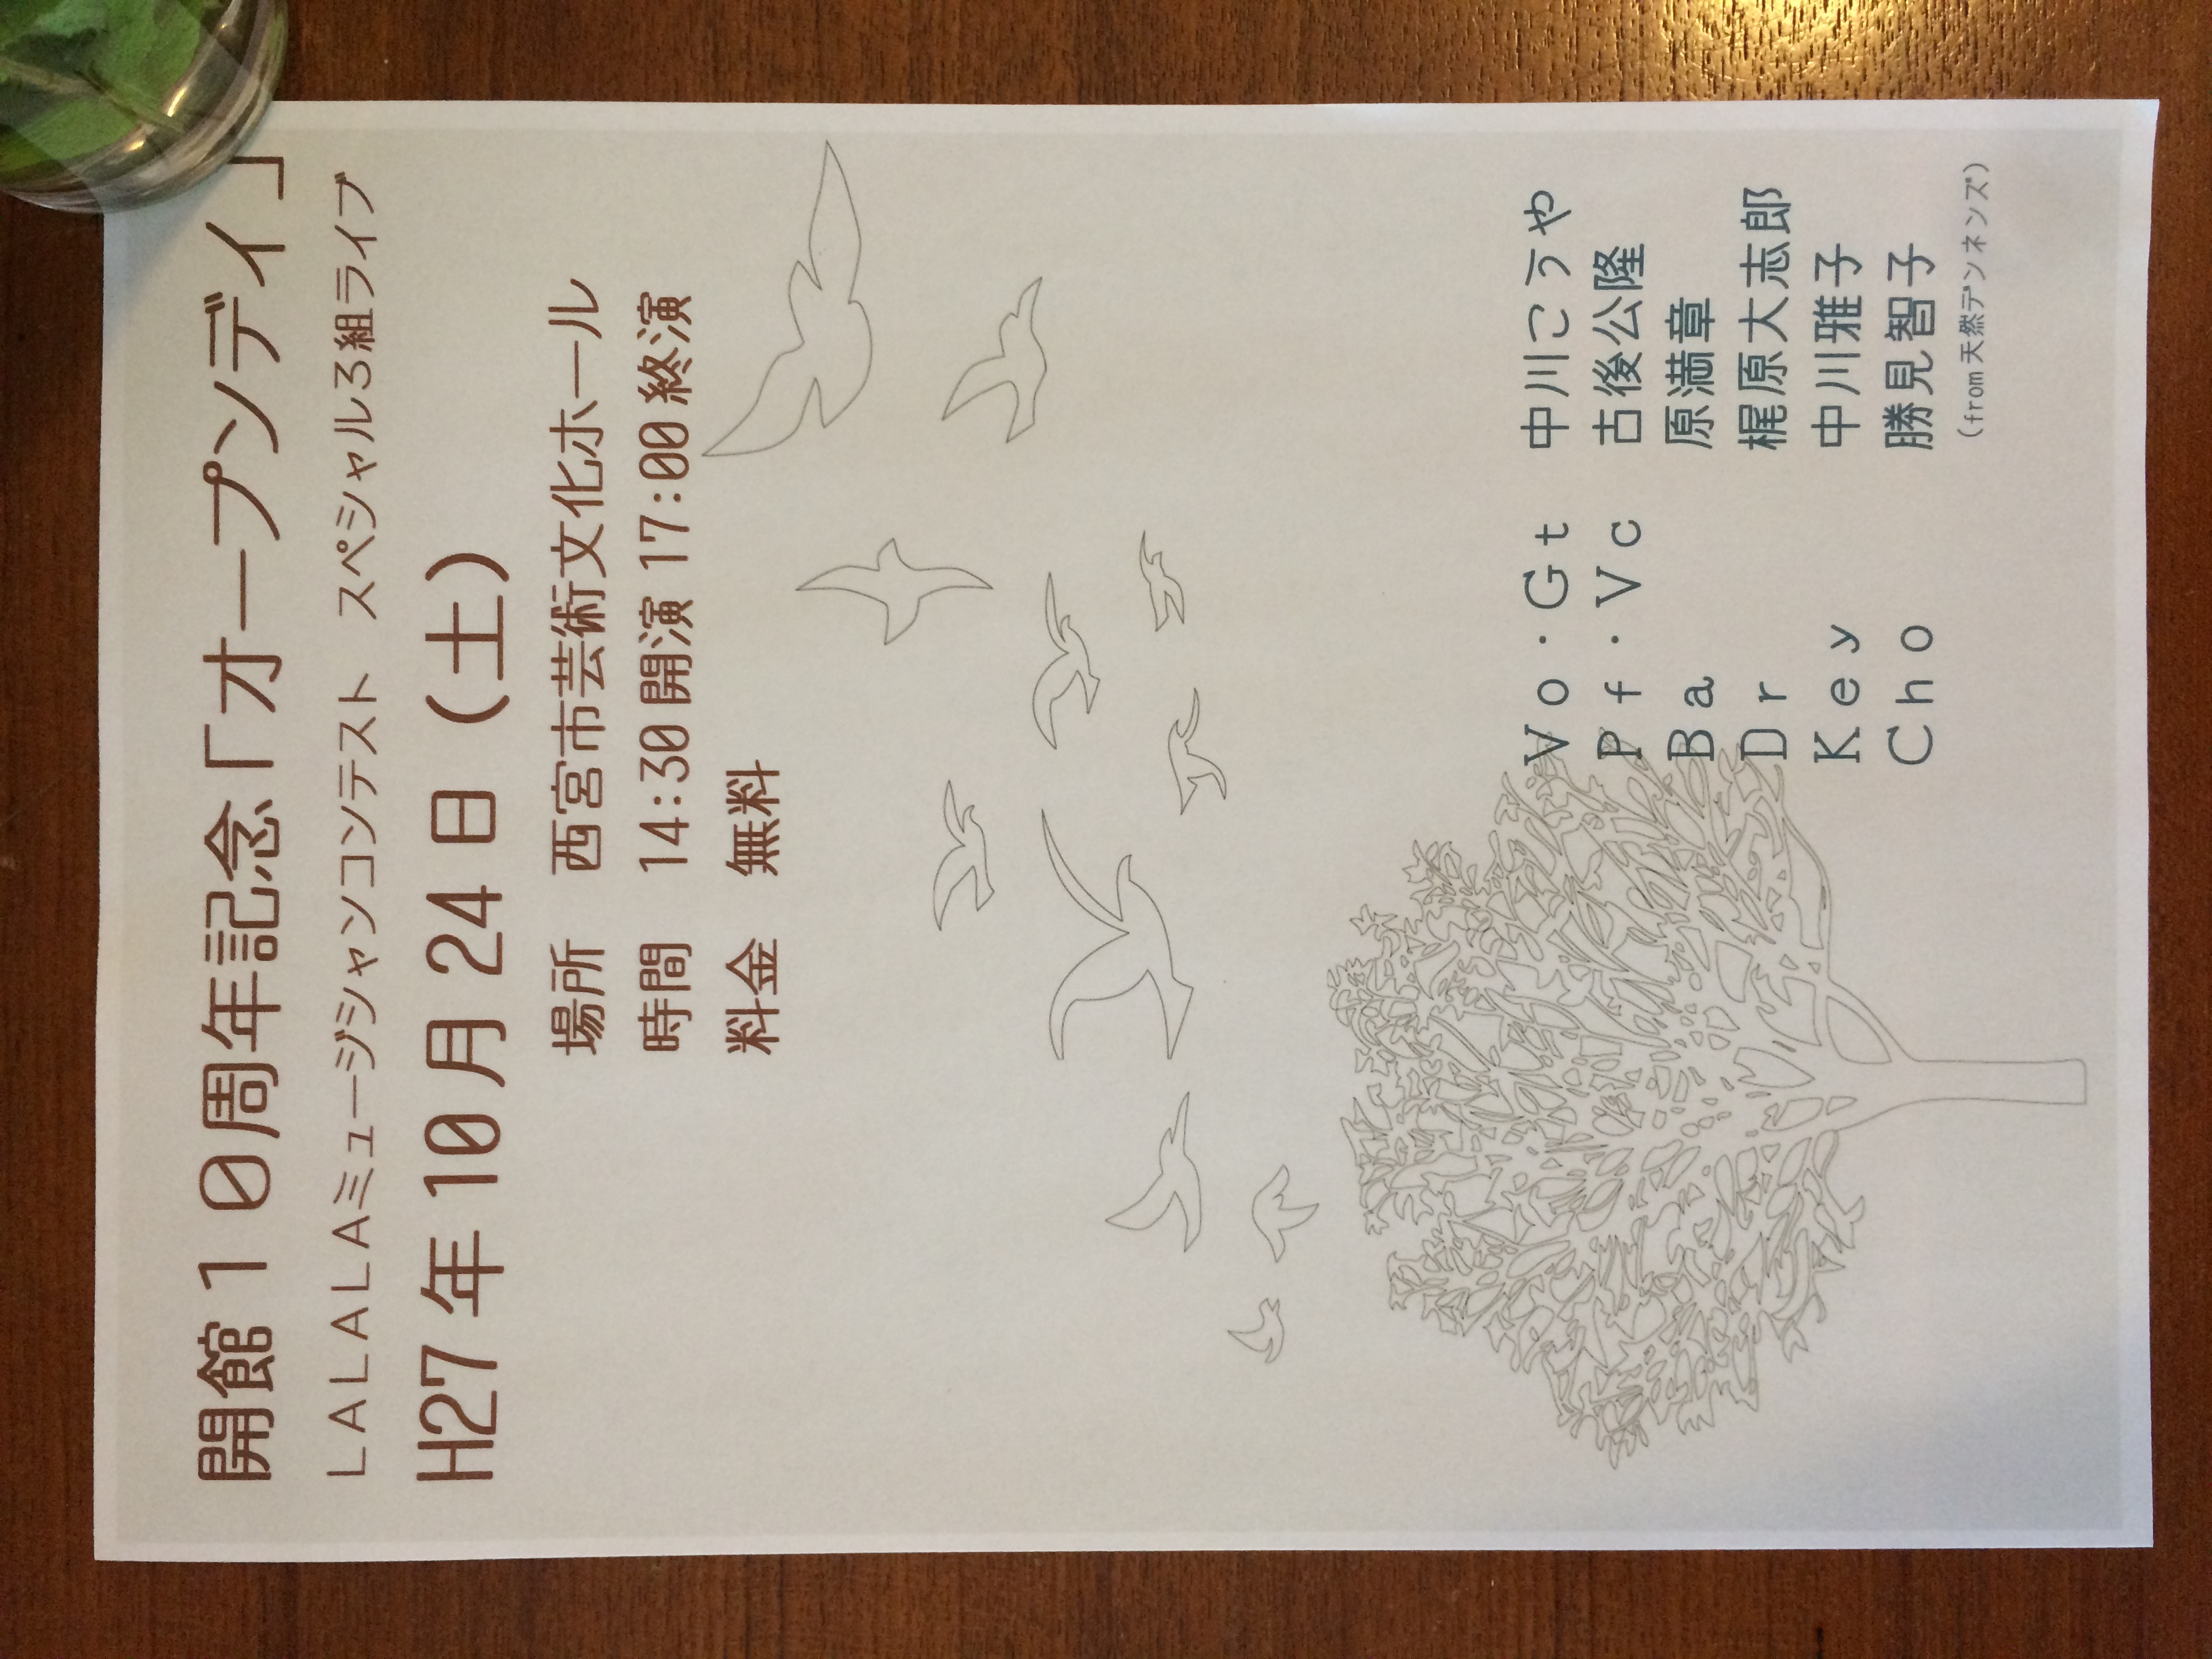 開館１０周年記念「オープンデイ」
ＬＡＬＡＬＡミュージシャンコンテスト　スペシャル３組ライブ
H27年10月24日（土）
場所　西宮市芸術文化ホール
時間　14:30開演 17:00終演
料金　無料
Ｖｏ・Ｇｔ　中川こうや
Ｐｆ・Ｖｃ　古後公隆
Ｂａ　原満章
Ｄｒ　梶原大志郎
Ｋｅｙ　中川雅子
Ｃｈｏ　勝見智子
（from天然デンネンズ）